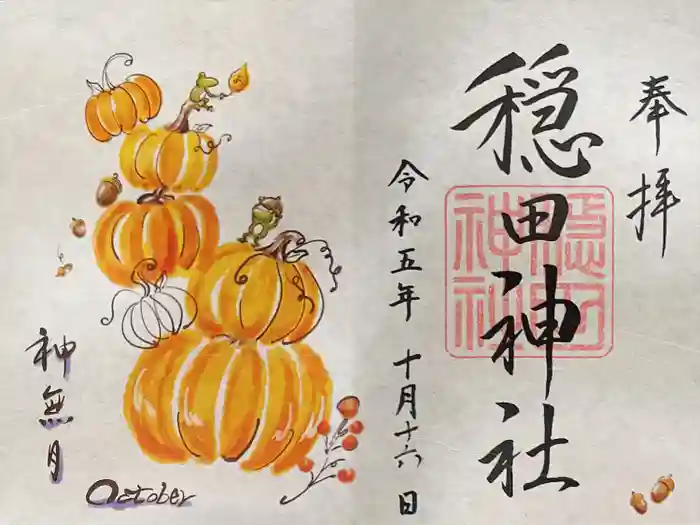 奉拝
穏田神社
穏田
神社
令和五年 十月十六日
神無月
October